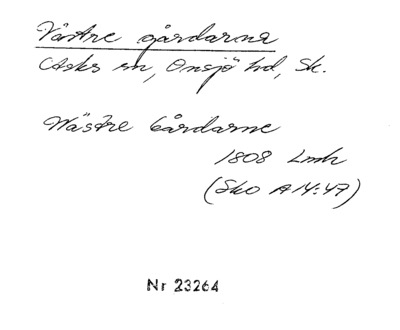 Västre gårdarna
Asks sn, Onsjö hd, Sk.
Wästre Gårdarne
1808 Lmh
(Sko A 14:47)
Nr 23264